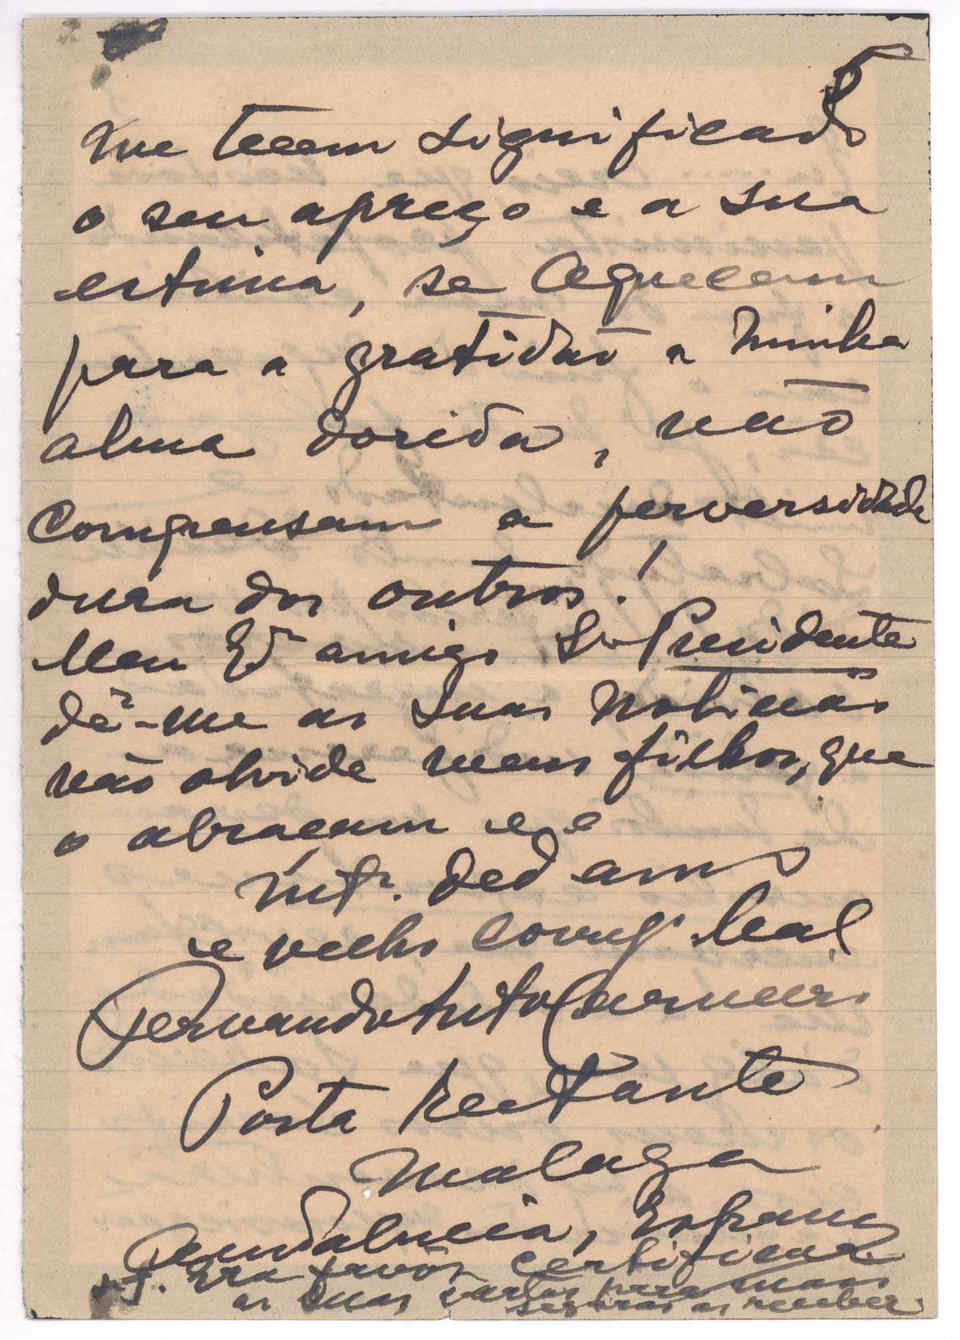 5
me teem significado
o seu apreço e a sua
estima, se aquecem
para a gratidão a minha
alma dorida, não
compensam a perversidade
dura dos outros!
Meu Exº amigo Sr Presidente
dê-me as suas noticias
não olvide meus filhos, que
o abraçam e e
mtº. ded am
e velho correlº leal
Fernando Auto Carneiro
Posta Restante
Malaga
Andalucia, Espanã
P.S. Era favôr certificar
as suas cartas para mais
seguras as receber.